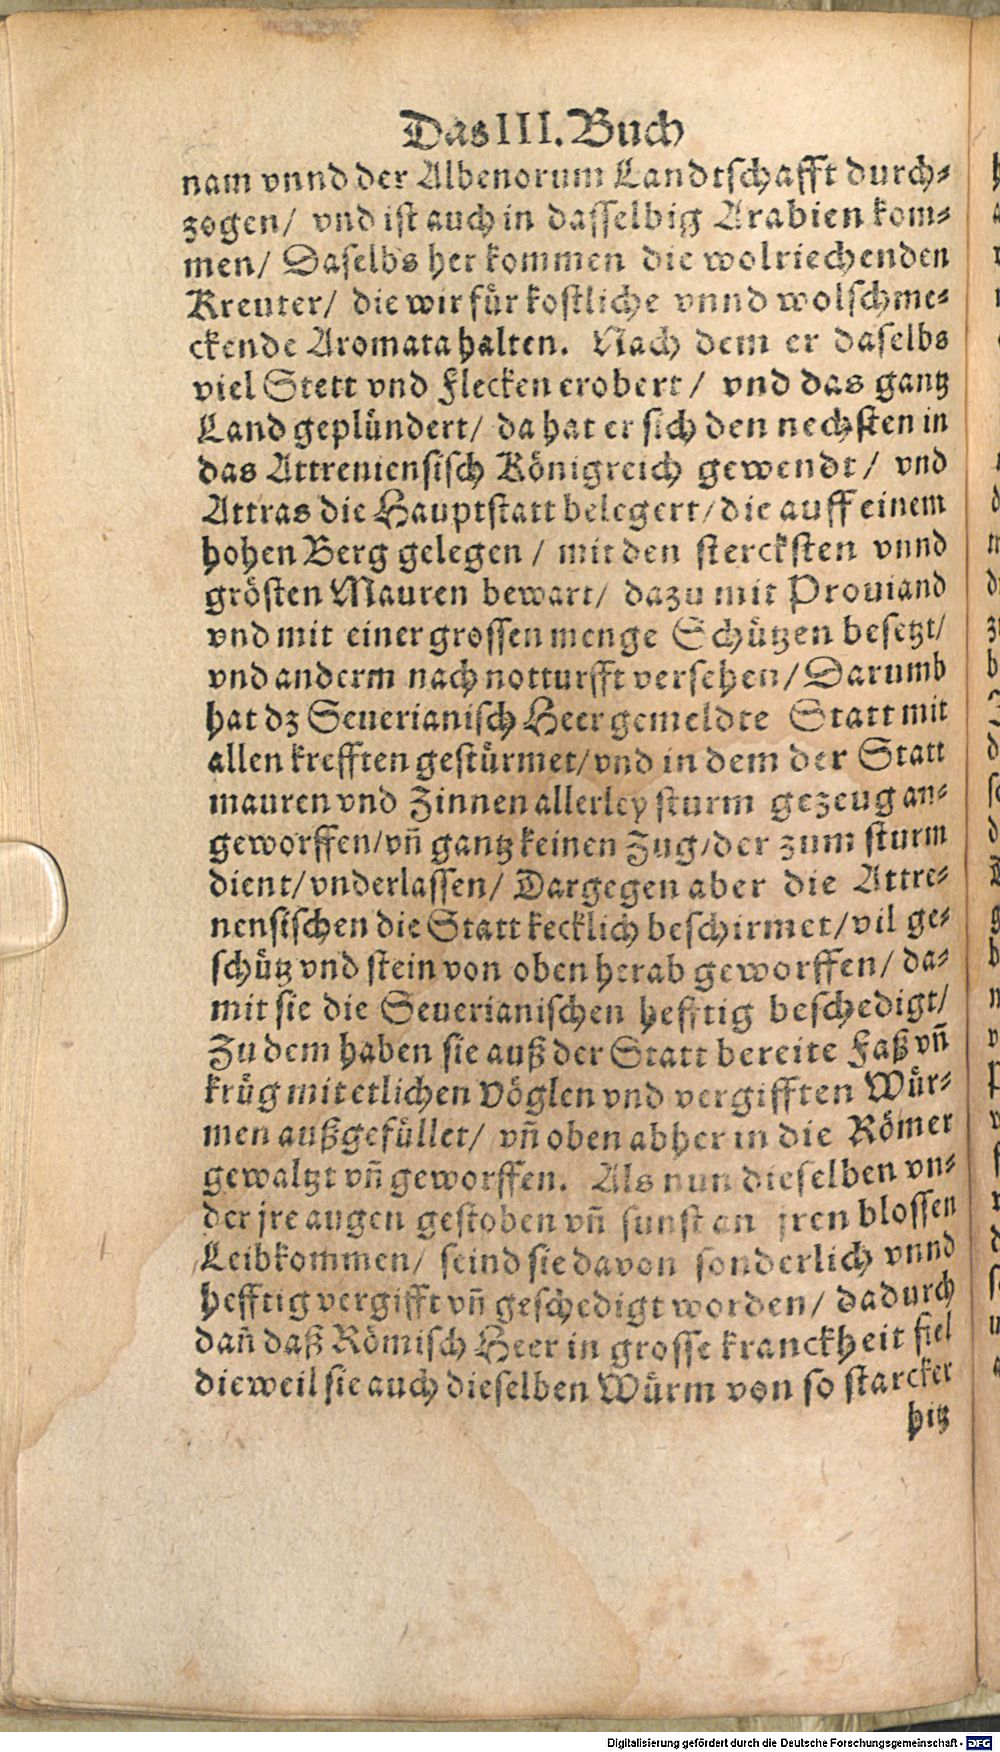 Das III. Buch
nam vnnd der Albenorum Landtschafft durch⸗
zogen/ vnd ist auch in dasselbig Arabien kom⸗
men/ Daselbs her kommen die wolriechenden
Kreuter/ die wir für kostliche vnnd wolschme⸗
ckende Aromata halten. Nach dem er daselbs
viel Stett vnd Flecken erobert/ vnd das gantz
Land geplündert/ da hat er sich den nechsten in
das Attreniensisch Königreich gewendt/ vnd
Attras die Hauptstatt belegert/ die auff einem
hohen Berg gelegen/ mit den stercksten vnnd
grösten Mauren bewart/ dazu mit Prouiand
vnd mit einer grossen menge Schützen besetzt/
vnd anderm nach notturfft versehen/ Darumb
hat dz Seuerianisch Heer gemeldte Statt mit
allen krefften gestürmet/ vnd in dem der Statt
mauren vnd Zinnen allerley sturm gezeug an⸗
geworffen/ vñ gantz keinen Zug/ der zum sturm
dient/ vnderlassen/ Dargegen aber die Attre⸗
nensischen die Statt kecklich beschirmet/ vil ge⸗
schütz vnd stein von oben herab geworffen/ da⸗
mit sie die Seuerianischen hefftig beschedigt/
Zu dem haben sie auß der Statt bereite Faß vñ
krüg mit etlichen Vöglen vnd vergifften Wür⸗
men außgefüllet/ vñ oben abher in die Römer
gewaltzt vñ geworffen. Als nun dieselben vn⸗
der jre augen gestoben vñ sunst an jren blossen
Leib kommen/ seind sie davon sonderlich vnnd
hefftig vergifft vñ geschedigt worden/ dadurch
dañ daß Römisch Heer in grosse kranckheit fiel
dieweil sie auch dieselben Würm von so starcker
hitz
Digitalisierung gefördert durch die Deutsche Forschungsgemeinschaft - DFG